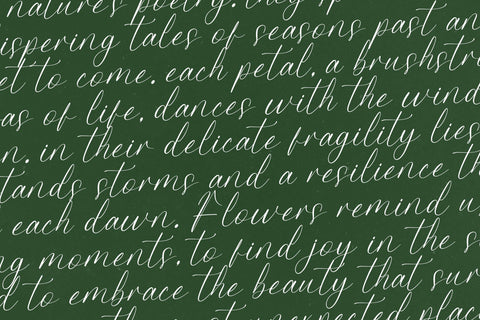 nature's poetry. they
ispering tales of seasons past an
et to come. each petal. a brushstr
as of life. dances with the wind
n. in their delicate fragility lies
tands storms and a resilience th
each dawn. Flowers remind u
ng moments. to find joy in the s
d to embrace the beauty that sur
unexpected place